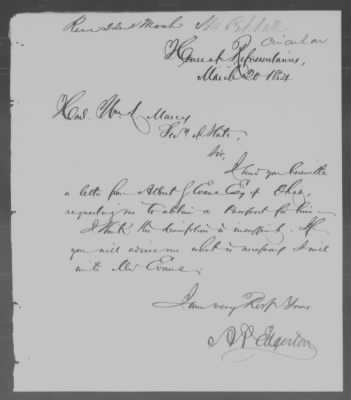 Recd 22nd March
Circular
House of Representatives,
March 20 1854.
Hon. Wm L. Marcy
Secy of State,
Sir,
I send you herewith
a letter from Albert G. Evans Esq of Ohio,
requesting me to obtain a Passport for him.
I think the description is insufficient. If
you will advise me what is necessary I will
write Mr Evans.
I am very Resp Yours
A P Edgerton